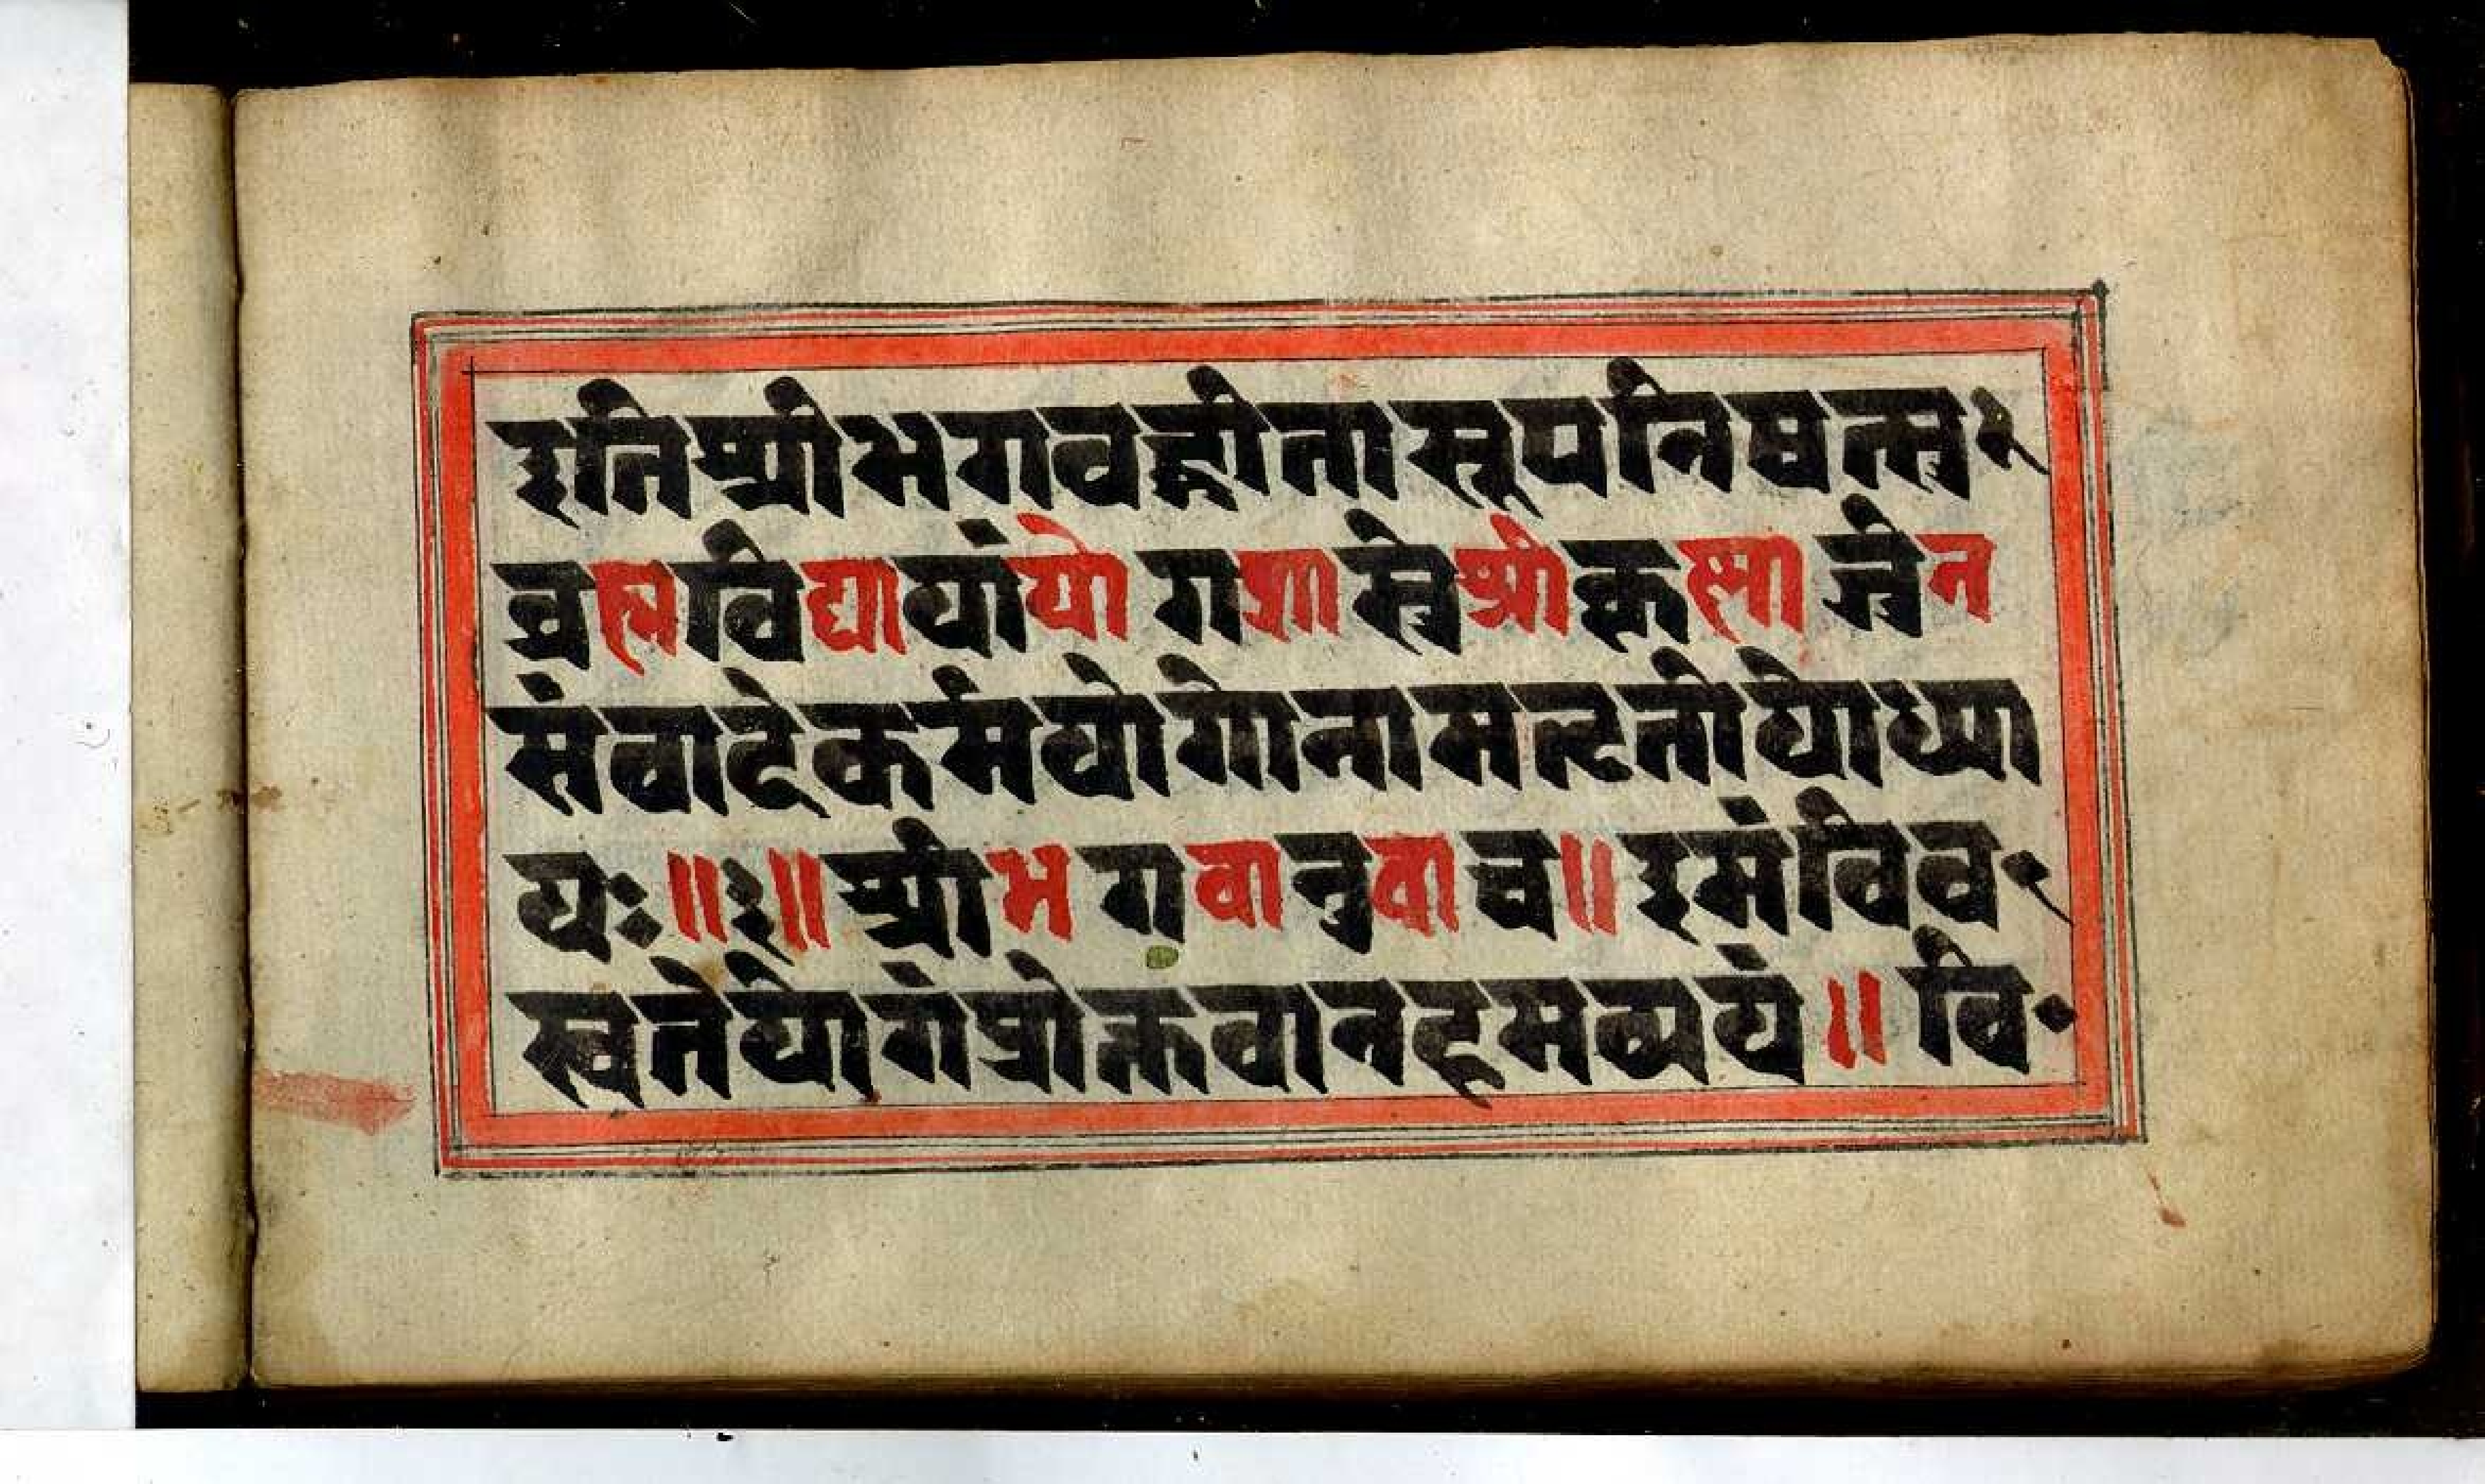 इतिश्रीभगवद्गीतासूपनिषत्सु
ब्रह्मविद्यायांयोगशास्त्रेश्रीकृष्णार्जुन
संवादेकर्मयोगोनामतृतीयोध्या
यः॥३॥श्रीभगवानुवाच॥इमंविव
स्वतेयोगंप्रोक्तवानहमव्ययं॥वि